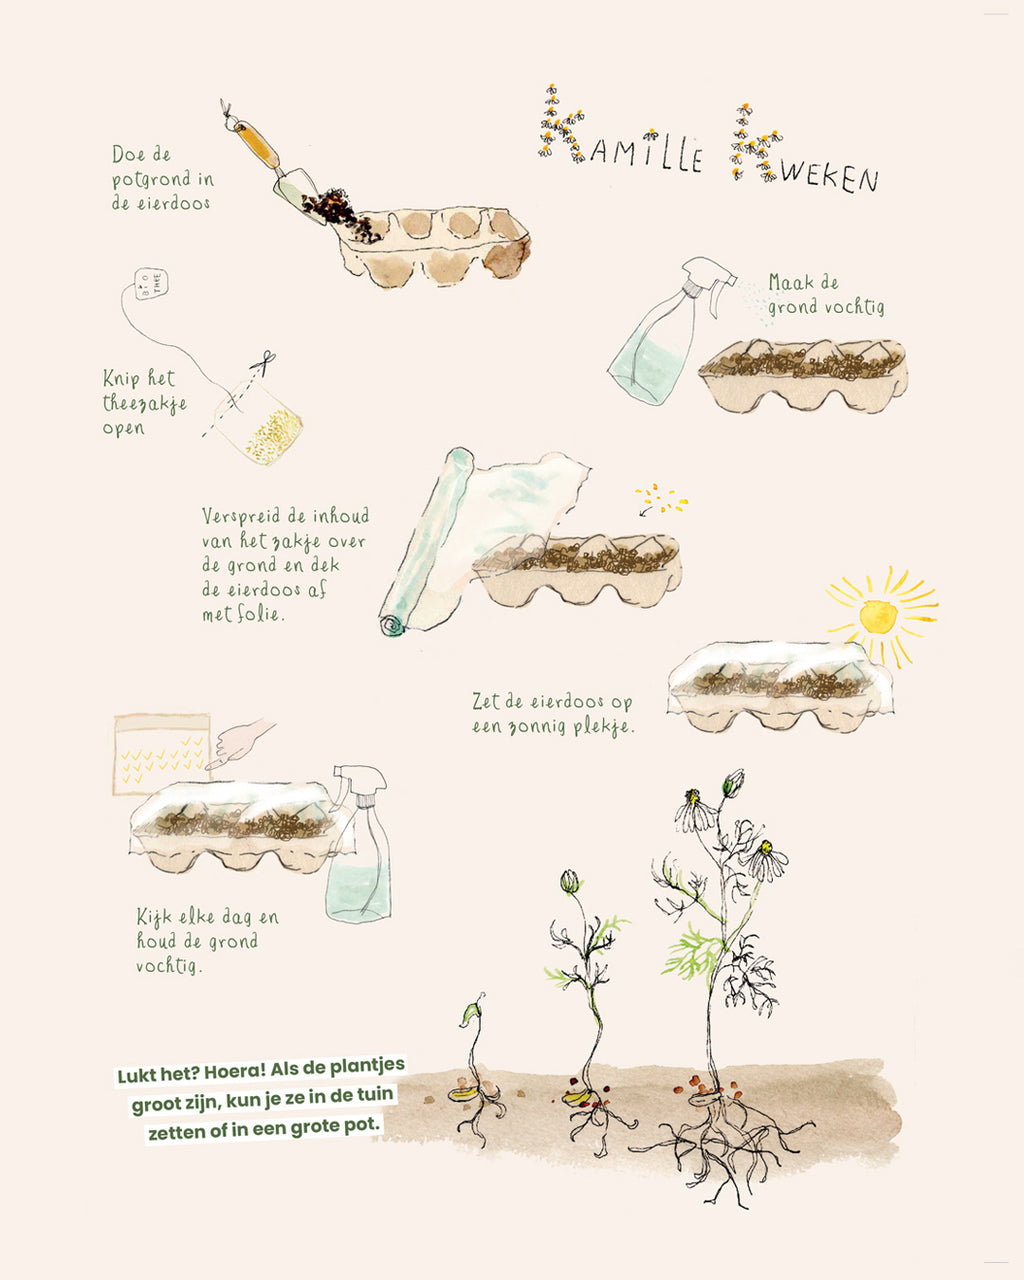 KAMILLE KWEKEN
Doe de
potgrond in
de eierdoos
BIO
THEE
Maak de
grond vochtig
Knip het
theezakje
open
Verspreid de inhoud
van het zakje over
de grond en dek
de eierdoos af
met folie.
Zet de eierdoos op
een zonnig plekje.
Kijk elke dag en
houd de grond
vochtig.
Lukt het? Hoera! Als de plantjes
groot zijn, kun je ze in de tuin
zetten of in een grote pot.